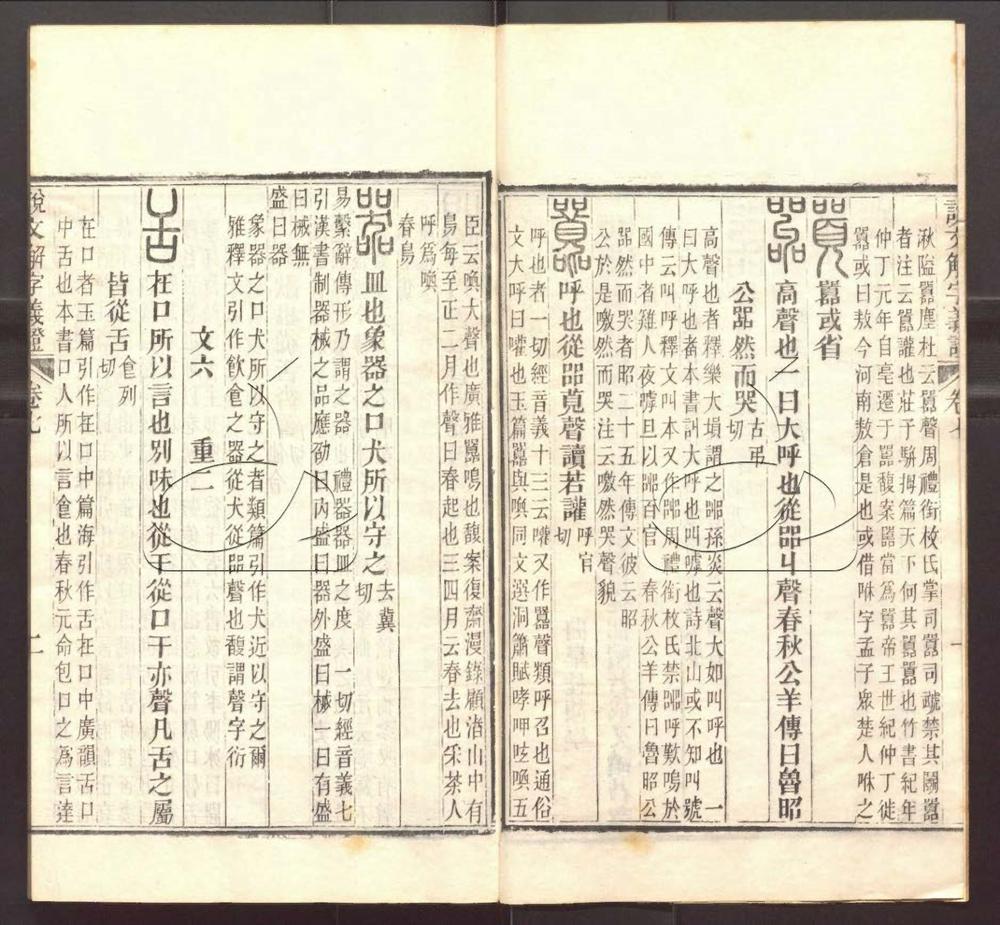 說文解字義證 卷七
湫隘囂塵杜云囂聲周禮銜枚氏掌司囂司䟽禁其鬭囂
者注云囂讙也莊子駢拇篇天下何其囂囂也竹書紀年
仲丁元年自亳遷于囂馥案囂當爲嚻帝王世紀仲丁徙
囂或曰敖今河南敖倉是也或借咻字孟子眾楚人咻之
囂或省
高聲也一曰大呼也從㗊丩聲春秋公羊傳曰魯昭
公嘂然而哭 古弔切
高聲也者釋樂大塤謂之嘂孫炎云聲大如叫呼也 一
曰大呼也者本書訆大呼也叫嘑也詩北山或不知叫號
傳云叫呼釋文叫本又作嘂周禮銜枚氏禁嘂呼歎鳴於
國中者雞人夜嘑旦以嘂百官 春秋公羊傳曰魯昭公
嘂然而哭者昭二十五年傳文彼云昭
公於是噭然而哭注云噭然哭聲貌
呼也從㗊莧聲讀若讙 呼官切
呼也者一切經音義十三云嚾又作嚻聲類呼召也通俗
文大呼曰嚾也玉篇嚻與喚同文選洞簫賦哮呷呟喚五
臣云喚大聲也廣雅嚻鳴也馥案復齋漫錄顧渚山中有
鳥每至正二月作聲曰春起也三四月云春去也采茶人
呼爲喚
春鳥
皿也象器之口犬所以守之 去冀切
易繫辭傳形乃謂之器 禮器器皿之度 一切經音義七
引漢書制器械之品應劭曰內盛曰器外盛曰械一曰有盛
曰械無
盛曰器
象器之口犬所以守之者類篇引作犬近以守之爾
雅釋文引作飲食之器從犬從㗊聲也馥謂聲字衍
文六 重二
在口所以言也別味也從干從口干亦聲凡舌之屬
皆從舌 食列切
在口者玉篇引作在口中篇海引作舌在口中廣韻舌口
中舌也本書口人所以言食也春秋元命包口之爲言達
說文解字義證 卷七 二